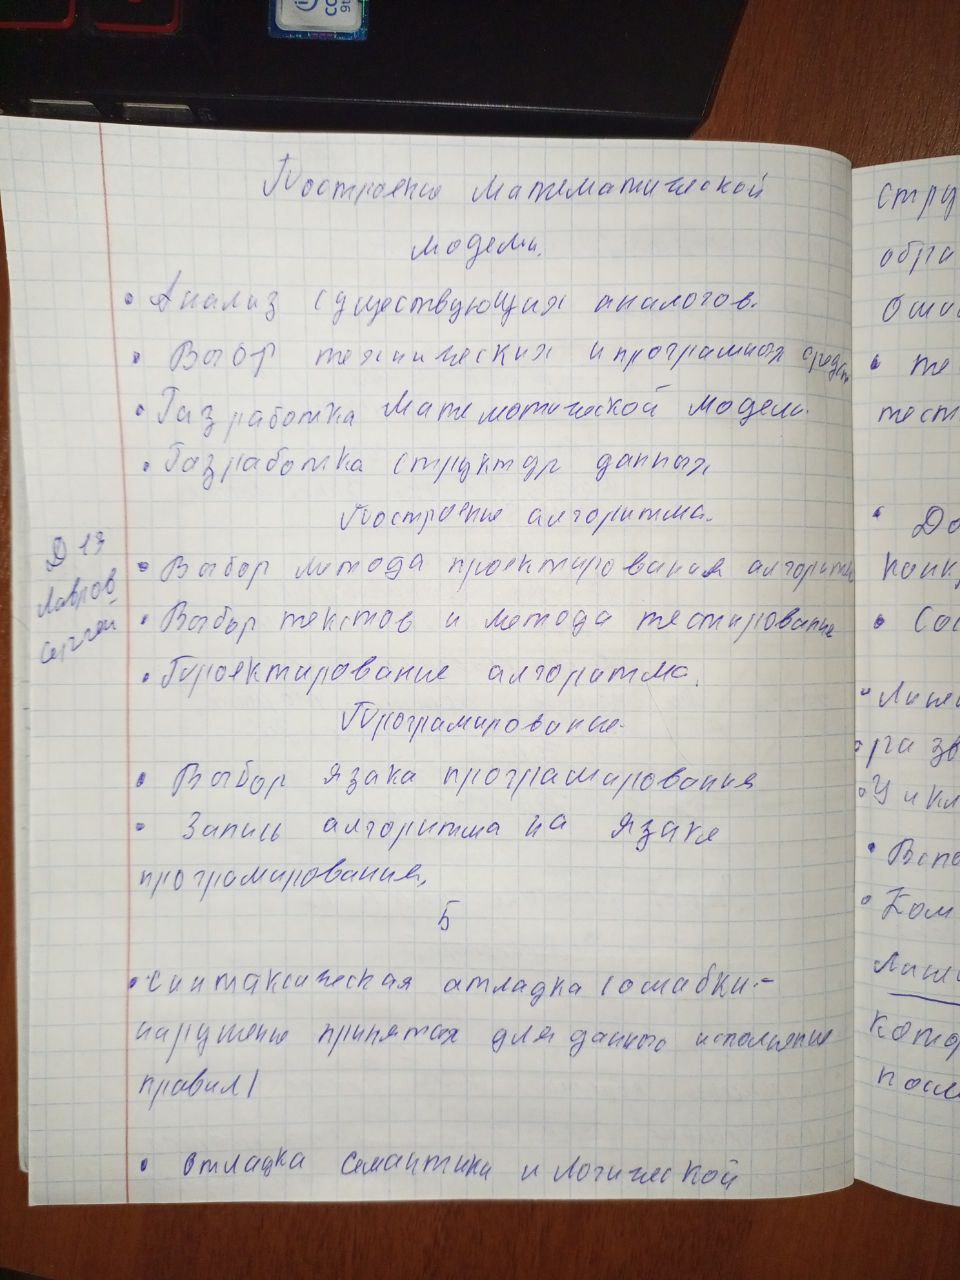 Построение математической
модели.
• Анализ существующих аналогов.
• Выбор технических и програмных средств
• Разработка математической модели.
• Разработка структур данных
Построение алгоритма.
Д 13
Лавров
Сергей
• Выбор метода проектирования алгоритма
• Выбор текстов и метода тестирование
• Проектирование алгоритма.
Програмирование.
• Выбор языка програмирования
• Запись алгоритма на языке
програмирования.
5
• синтаксическая отладка (ошибки -
нарушение принятых для данного исполнение
правил)
• Отладка семантики и логической
стру
обра
• те
тест
• До
• Сос
• Лине
• разв
• Цикл
• Вспо
• Ком
Лине
кото
посл